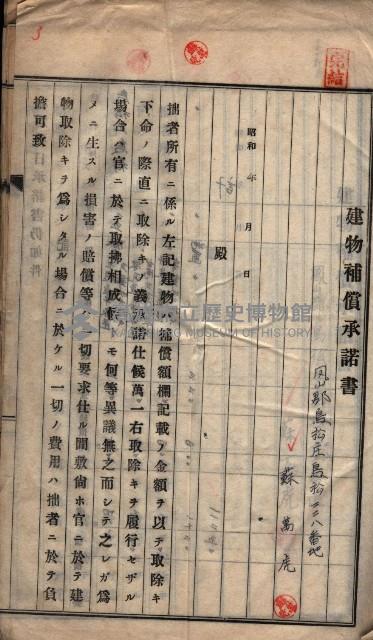 完結
建物補償承諾書
鳳山郡鳥松庄鳥松二三八番地
蘇萬虎
昭和 年 月 日
殿
拙者所有ニ係ル左記建物補償額欄記載ノ金額ヲ以テ取除キ
下命ノ際直ニ取除キノ義承諾仕候萬一右取除キヲ履行セザル
場合ハ官ニ於テ取拂相成候トモ何等異議無之而シテ之レガ爲
メニ生スル損害ノ賠償等一切要求仕ル間敷尙ホ官ニ於テ建
物取除キヲ爲シタル場合ニ於ケル一切ノ費用ハ拙者ニ於テ負
擔可致日承諾書仍如件
3
立歷史博物館